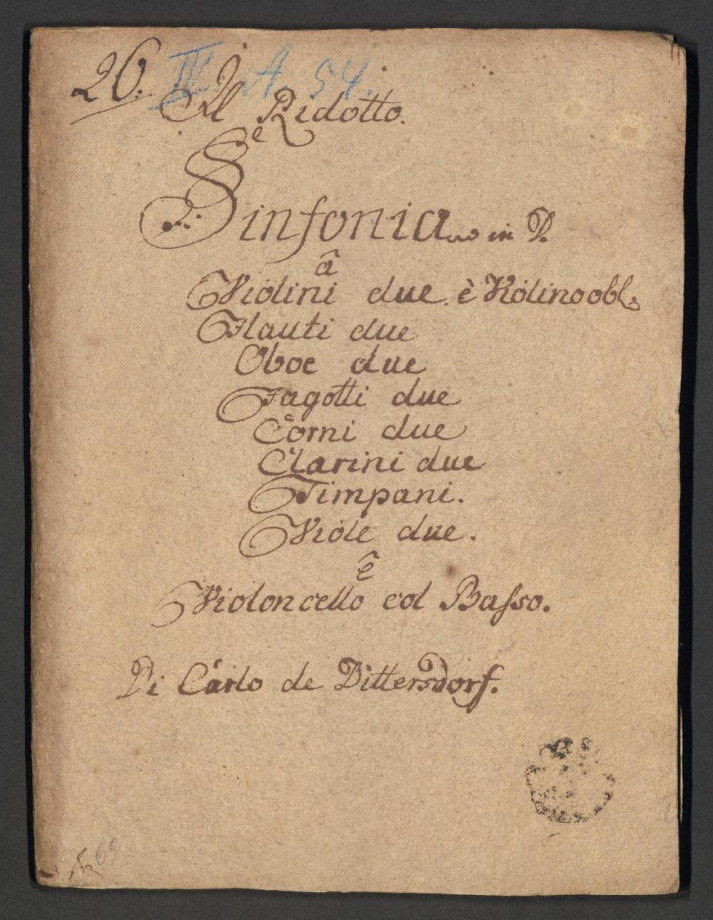 26. IV A 54.
Il Ridotto.
è
Sinfonia in D.
â
Violini due è Violino obl.
Flauti due
Oboe due
Fagotti due
Corni due
Clarini due
Timpani.
Viole due.
ê
Violoncello col Basso.
Di Carlo de Dittersdorf.